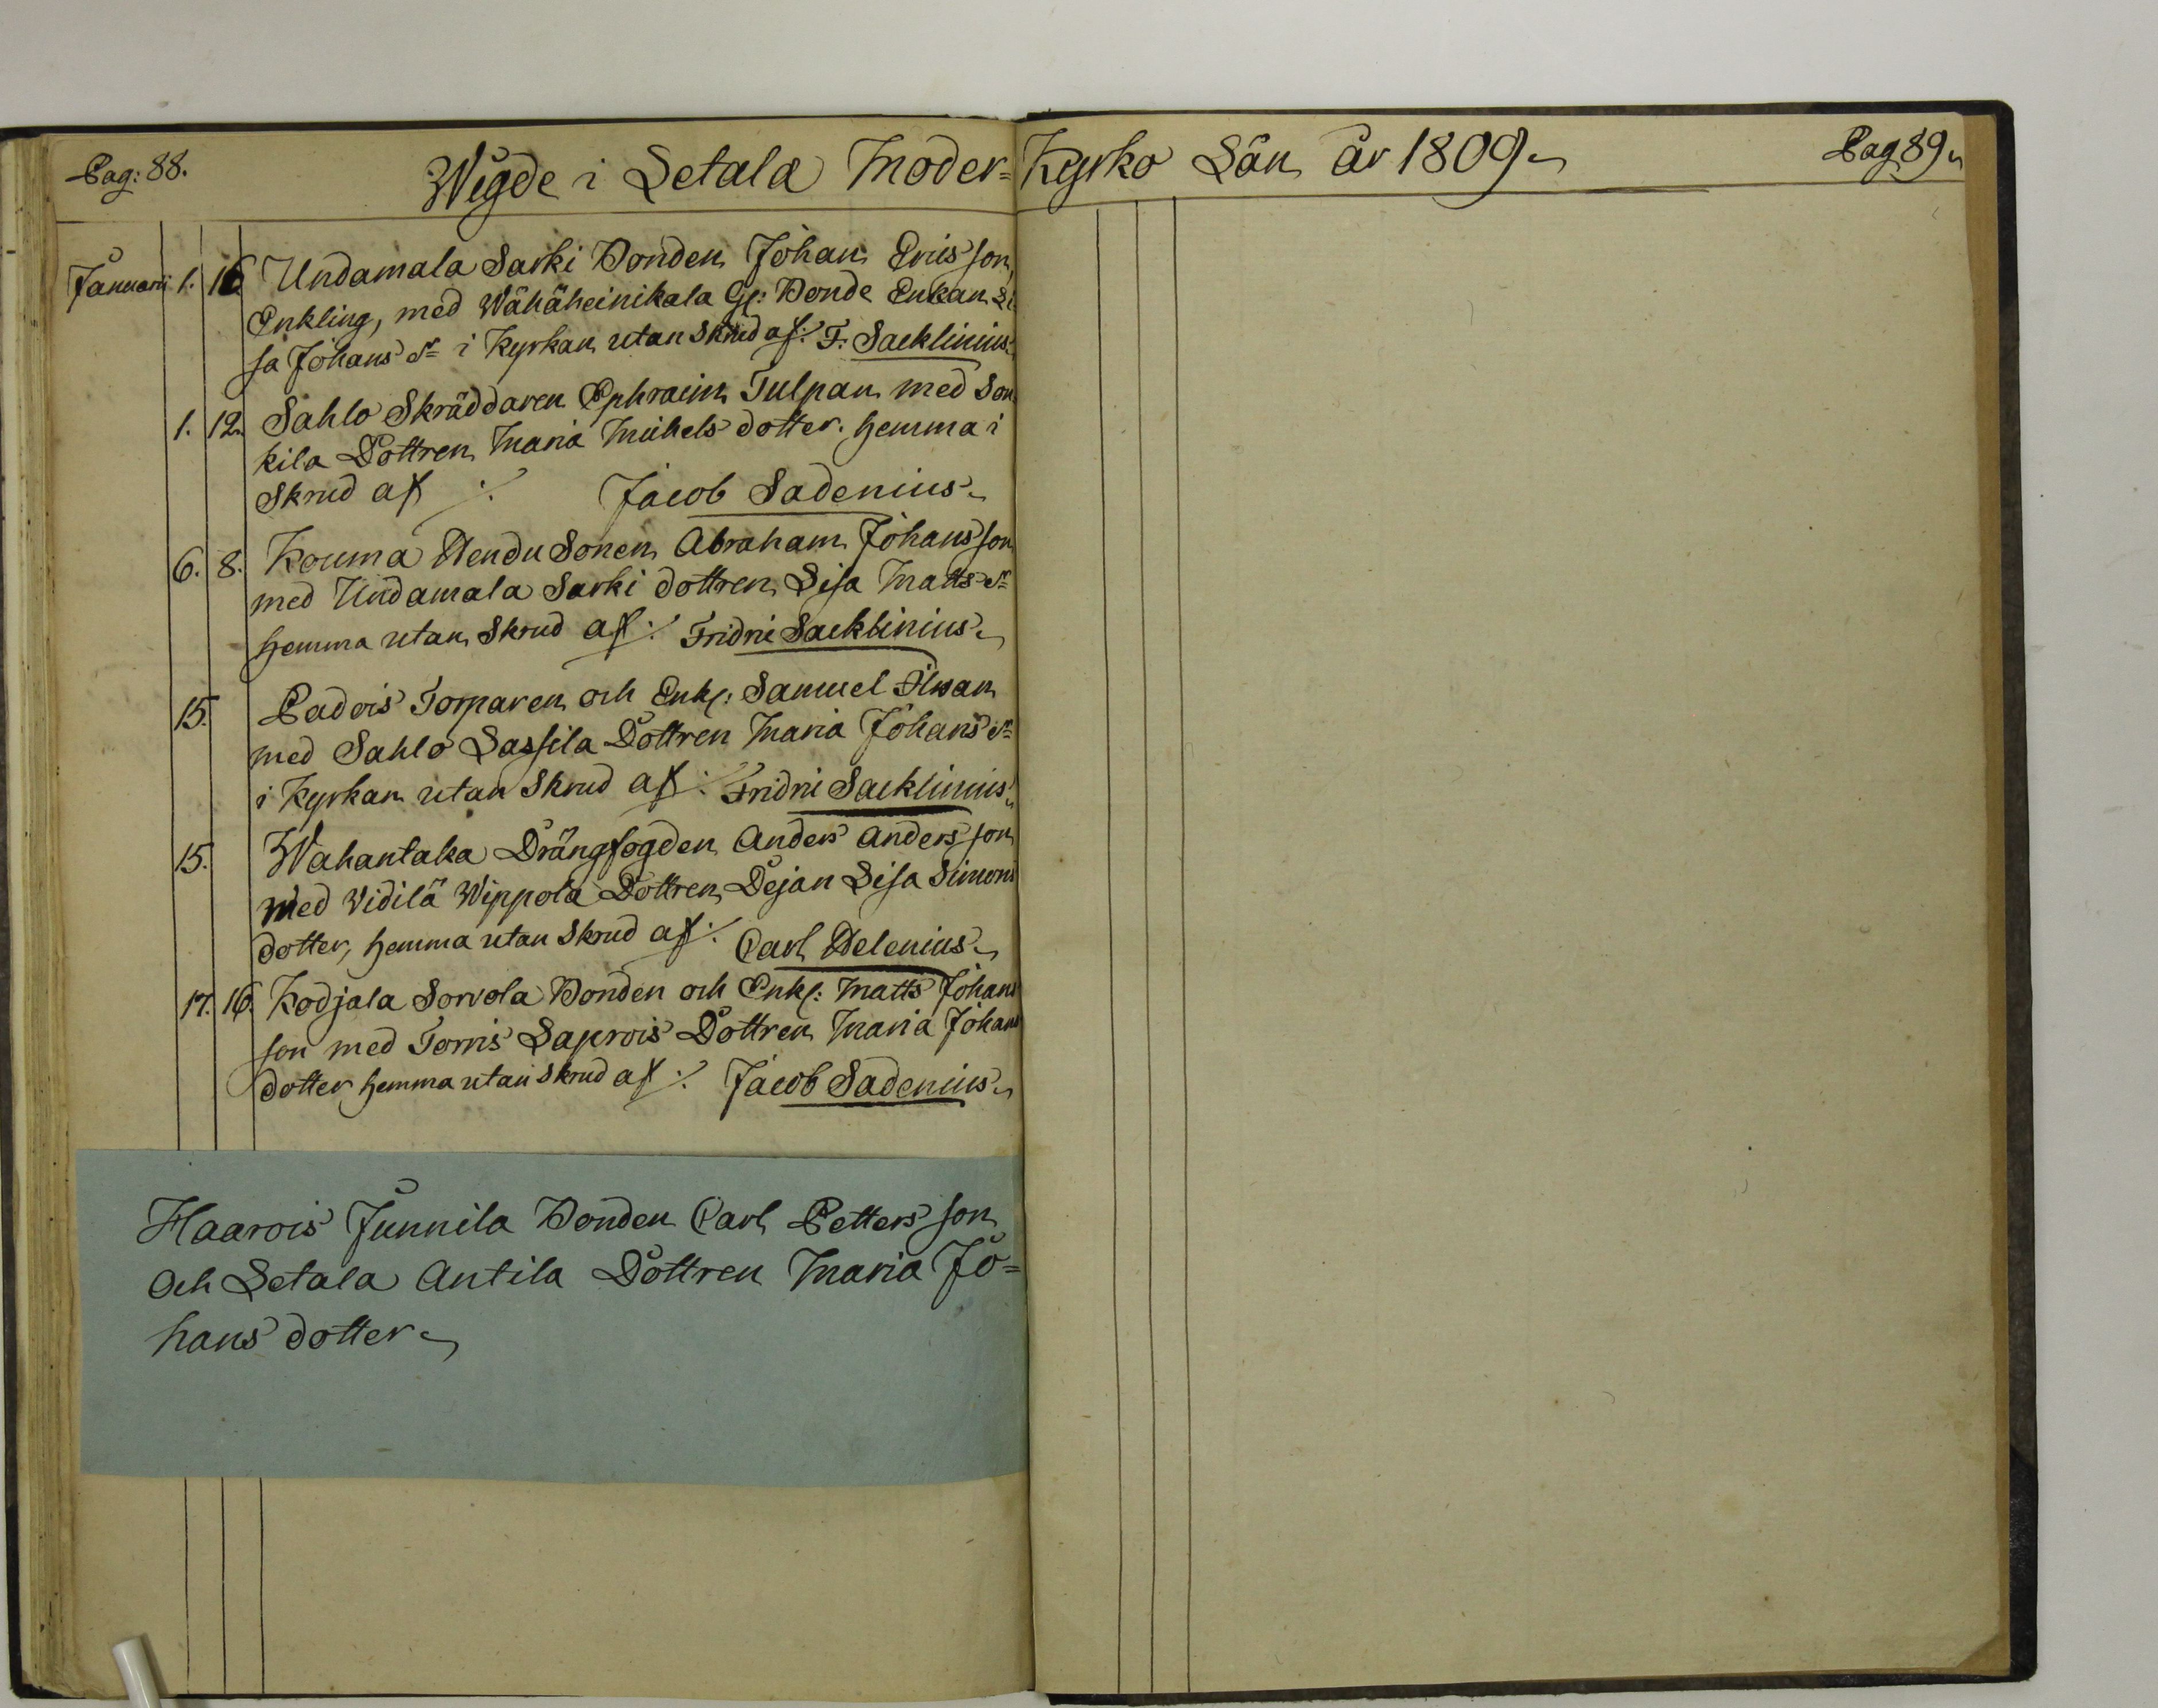 Pag: 88.
Wigde i Letala Moder= Kyrko Sån år 1809
Pag 89
Januarii 1. 16 Undamala Sarki Bonden Johan Erics son,
Enkling, med Wähäheinikala Gl: Bonde Enkan Li
sa Johans dr i Kyrkan utan Skrud af ∕. F. Sacklinius
1. 12. Sahlo Skräddaren Ephraim Tulpan med Son
kila Dottren Maria Michels dotter. hemma i
Skrud af ∕. Jacob Sadenius
6. 8. Kouma Hendu Sonen Abraham Johans son
med Undamala Sarki dottren Lisa Matts dr
hemma utan Skrud af ∕. Fridric Sacklinius
15. Padois Torparen och Enkl: Samuel Ilwan
med Sahlo Lassila Dottren Maria Johans dr
i Kyrkan utan Skrud af ∕. Fridric Sacklinius
15. Wahantaka Drängfogden Anders Anders son
med Vidilä Wippola Dottren Dejan Lisa Simons
dotter, hemma utan Skrud af ∕. Carl Helenius
17. 16. Kodjala Sorvola Bonden och Enkl: Matts Johans
son med Torris Laprois Dottren Maria Johans
dotter hemma utan Skrud af ∕. Jacob Sadenius
Haarois Junnila Bonden Carl Petters son
och Letala Antila Dottren Maria Jo=
hans dotter